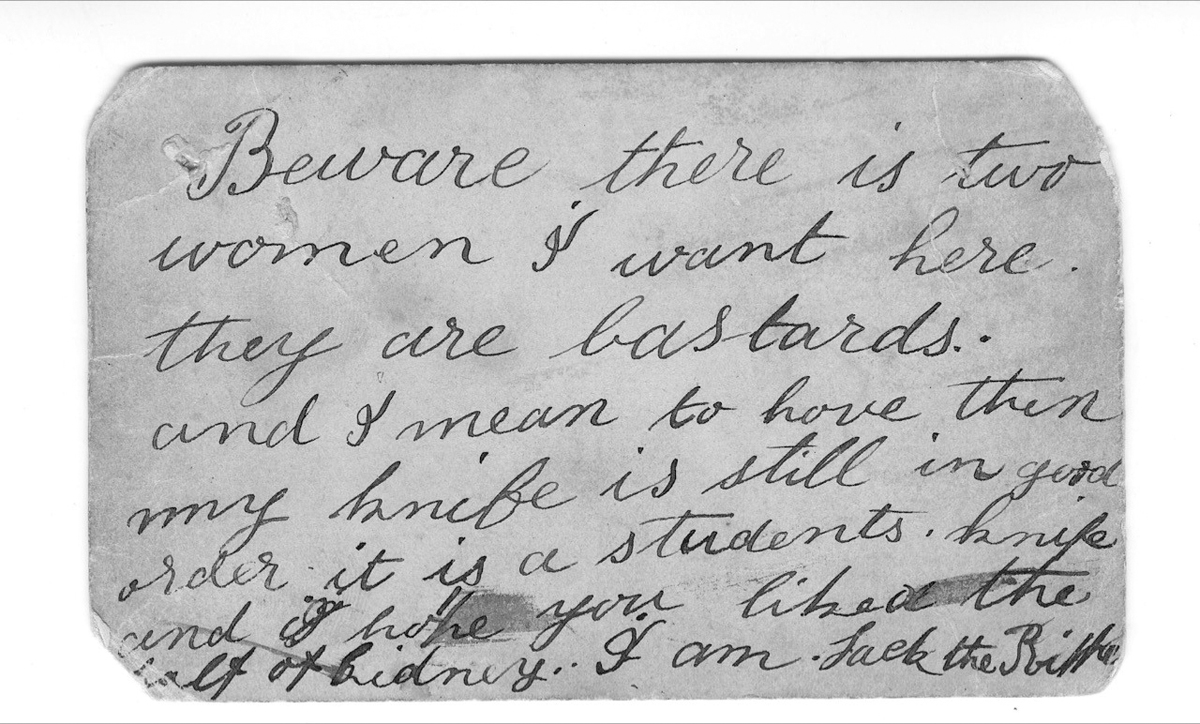 Beware there is two
women I want here.
they are bastards.
and I mean to hove then
my knife is still in good
order it is a students. knife
and I hope you liked the
half of kidney.. I am. Jack the Ripper